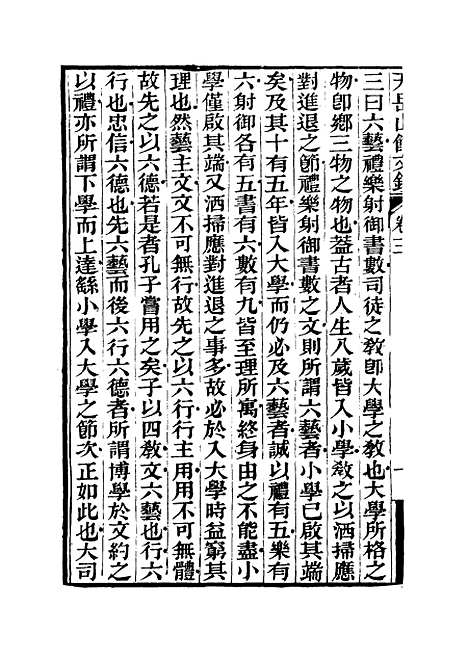 天岳山館文鈔 卷三 一
三曰六藝禮樂射御書數司徒之敎卽大學之敎也大學所格之
物卽鄕三物之物也葢古者人生八歲皆入小學敎之以洒掃應
對進退之節禮樂射御書數之文則所謂六藝者小學已啟其端
矣及其十有五年皆入大學而仍必及六藝者誠以禮有五樂有
六射御各有五書有六數有九皆至理所寓終身由之不能盡小
學僅啟其端又洒掃應對進退之事多故必於入大學時益窮其
理也然藝主文文不可無行故先之以六行行主用用不可無體
故先之以六德若是者孔子嘗用之矣子以四敎文六藝也行六
行也忠信六德也先六藝而後六行六德者所謂博學於文約之
以禮亦所謂下學而上達繇小學入大學之節次正如此也大司